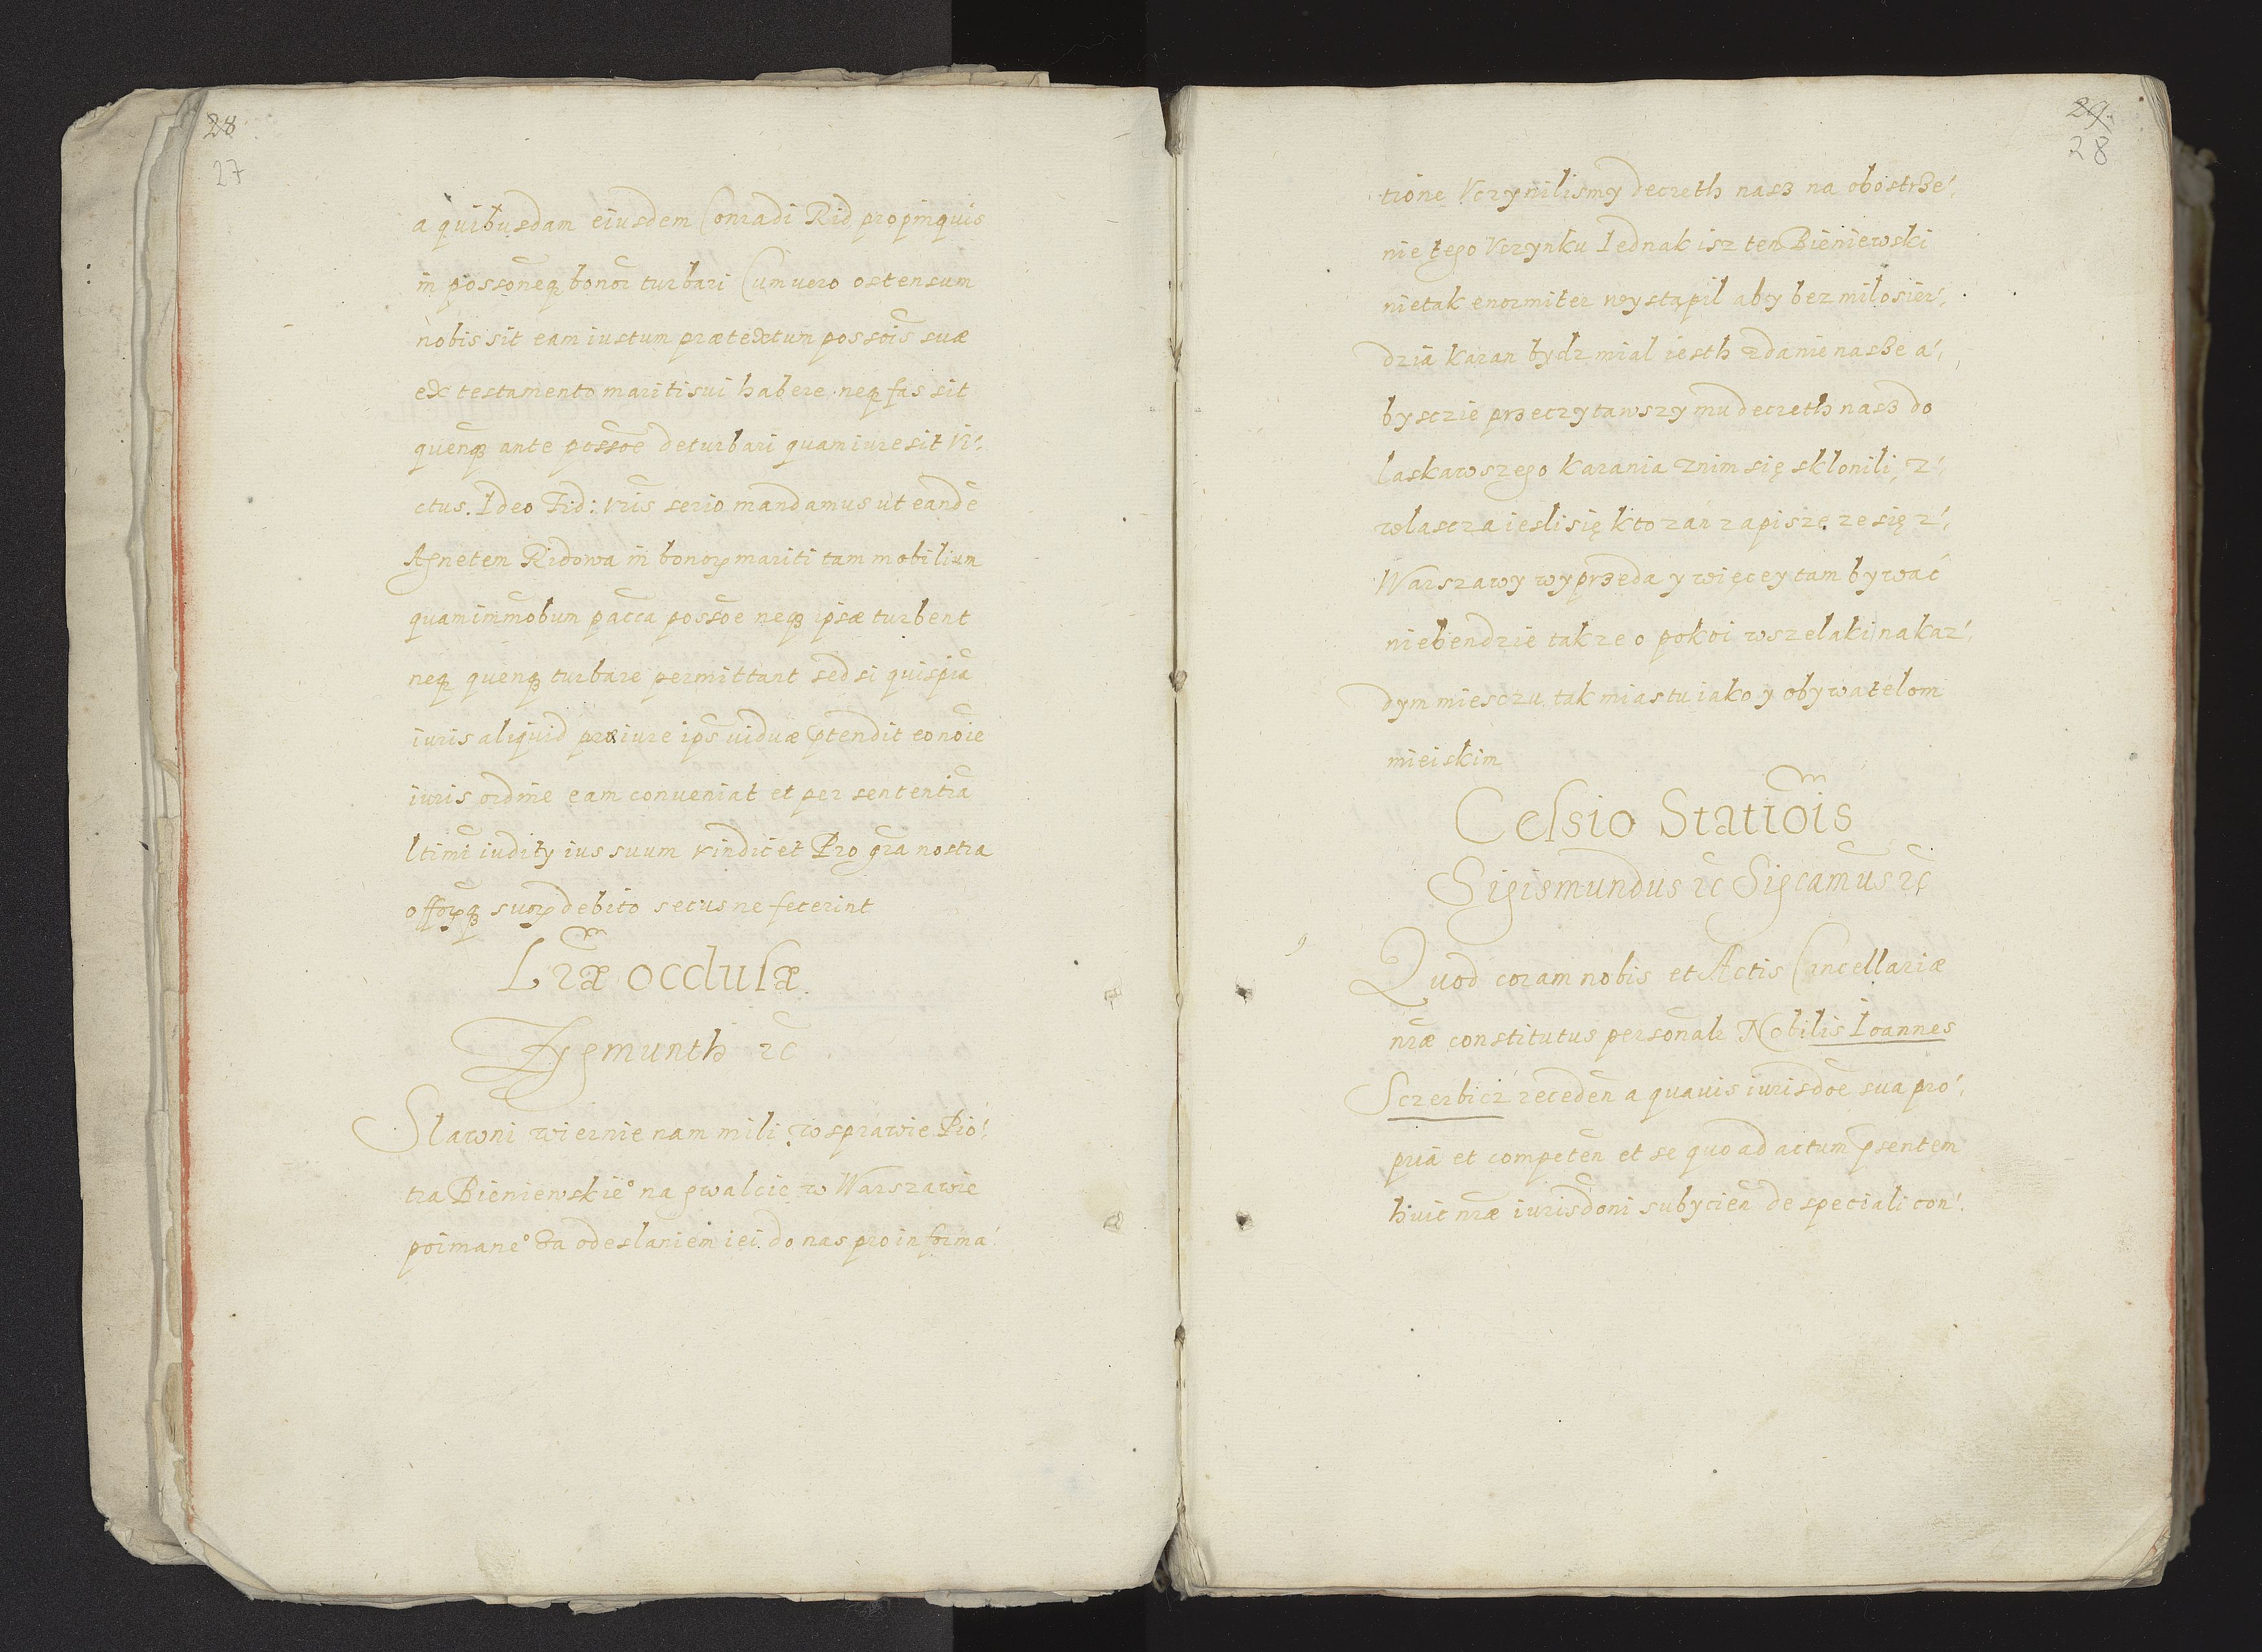 28
27
a quibusdam eiusdem Conradi Rid propinquis
in possoneq bonor turbari Cum vero ostensum
nobis sit eam iustum prætextum possois suæ
ex testamento mariti sui habere neq fas sit
quenq ante possoe deturbari quam iure sit vi
ctus. Ideo Fid: vris serio mandamus ut eandē
Agnetem Ridowa in bonor mariti tam mobilium
quam immobum pacca possoe neq ipsæ turbent
neq quenq turbare permittant sed si quispiā
iuris aliquid præ iure ips viduæ ptendit eo noie
iuris ordine eam conveniat et per sententiā
ltimi iudity ius suum vindicet Pro gra nostra
offorq suor debito secus ne fecerint
Lræ occlusæ
Zygmunth ꝛc
Slawni wiernie nam mili w sprawie Pio
tra Bieniewskie° na gwalcie w Warszawie
poimane° Za odeslaniem iei do nas pro informa
29.
28
tione Vczynilismy decreth nasz na obostrze
nie tego Vczynku Iednak isz ten Bieniewski
nietak enormiter wystąpil aby bez milosier
dzia karan bydz mial iesth zdanie nasze a
bysczie przeczytawszy mu decreth nasz do
laskawszego karania znim się sklonili, z
wlascza iesli się kto zań zapisze ze się z
Warszawy wyprzeda y więcey tam bywać
niebendzie takze o pokoi wszelaki na kaz
dym miesczu tak miastu iako y obywatelom
mieiskim
Celsio Statiōis
Sigismundus ꝛc Sigcamus ꝛc
Quod coram nobis et Actis Cancellariæ
nræ constitutus personalr Nobilis Ioannes
Sczerbicz receden a quavis iurisdoe sua pro
pria et competen et se quo ad actum psentem
huic nræ iurisdoni subycien de speciali con